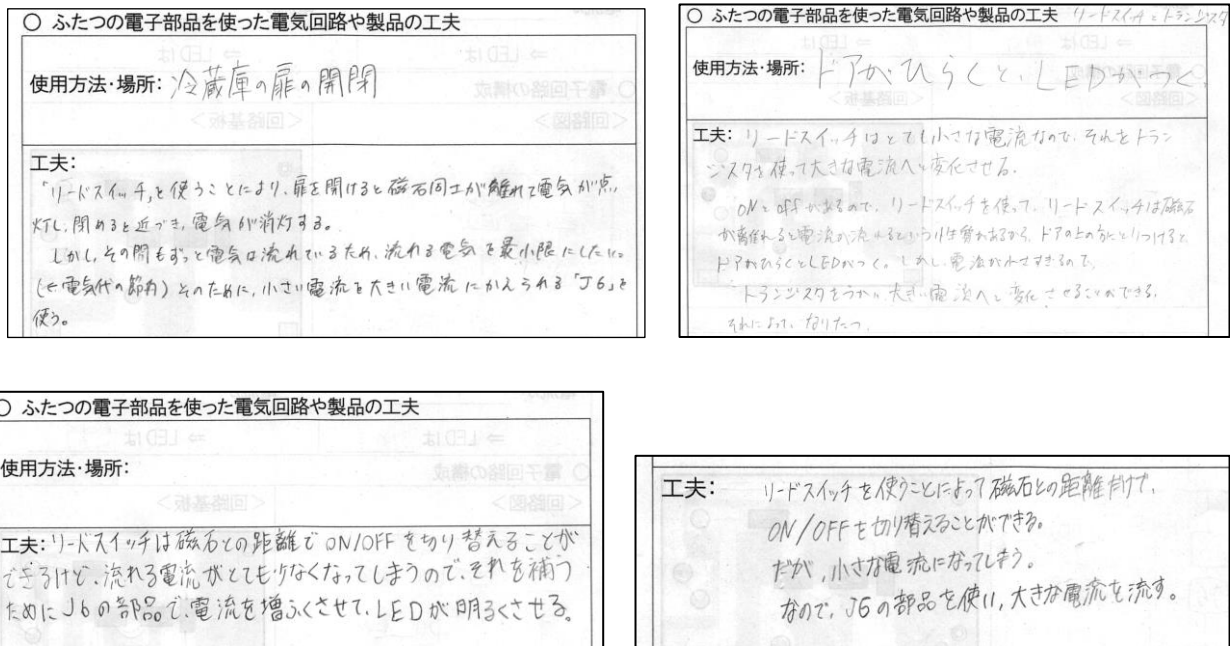 ○ ふたつの電子部品を使った電気回路や製品の工夫
使用方法・場所: 冷蔵庫の扉の開閉
工夫:
「リードスイッチ」を使うことにより、扉を開けると磁石同士が離れて電気が点
灯し、閉めると近づき、電気が消灯する。
しかし、その間もずっと電気は流れているため、流れる電気を最小限にしたい。
(←電気代の節約) そのために、小さい電流を大きい電流にかえられる「J6」を
使う。
○ ふたつの電子部品を使った電気回路や製品の工夫 リードスイッチとトランジスタ
使用方法・場所: ドアがひらくと、LEDがつく。
工夫: リードスイッチはとても小さな電流なので、それをトラン
ジスタを使って大きな電流へと変化させる。
ONとOFFがあるので、リードスイッチを使って、リードスイッチは磁石
が離れると電流が流れるという性質があるから、ドアの上の方にとりつけると
ドアがひらくとLEDがつく。しかし、電流が小さすぎるので、
トランジスタをつかい大きい電流へと変化させることができる。
それによって、なりたつ。
○ ふたつの電子部品を使った電気回路や製品の工夫
使用方法・場所:
工夫: リードスイッチは磁石との距離でON/OFFを切り替えることが
できるけど、流れる電流がとても少なくなってしまうので、それを補う
ためにJ6の部品で、電流を増ふくさせて、LEDが明るくさせる。
工夫: リードスイッチを使うことによって磁石との距離だけで、
ON/OFFを切り替えることができる。
だが、小さな電流になってしまう。
なので、J6の部品を使い、大きな電流を流す。